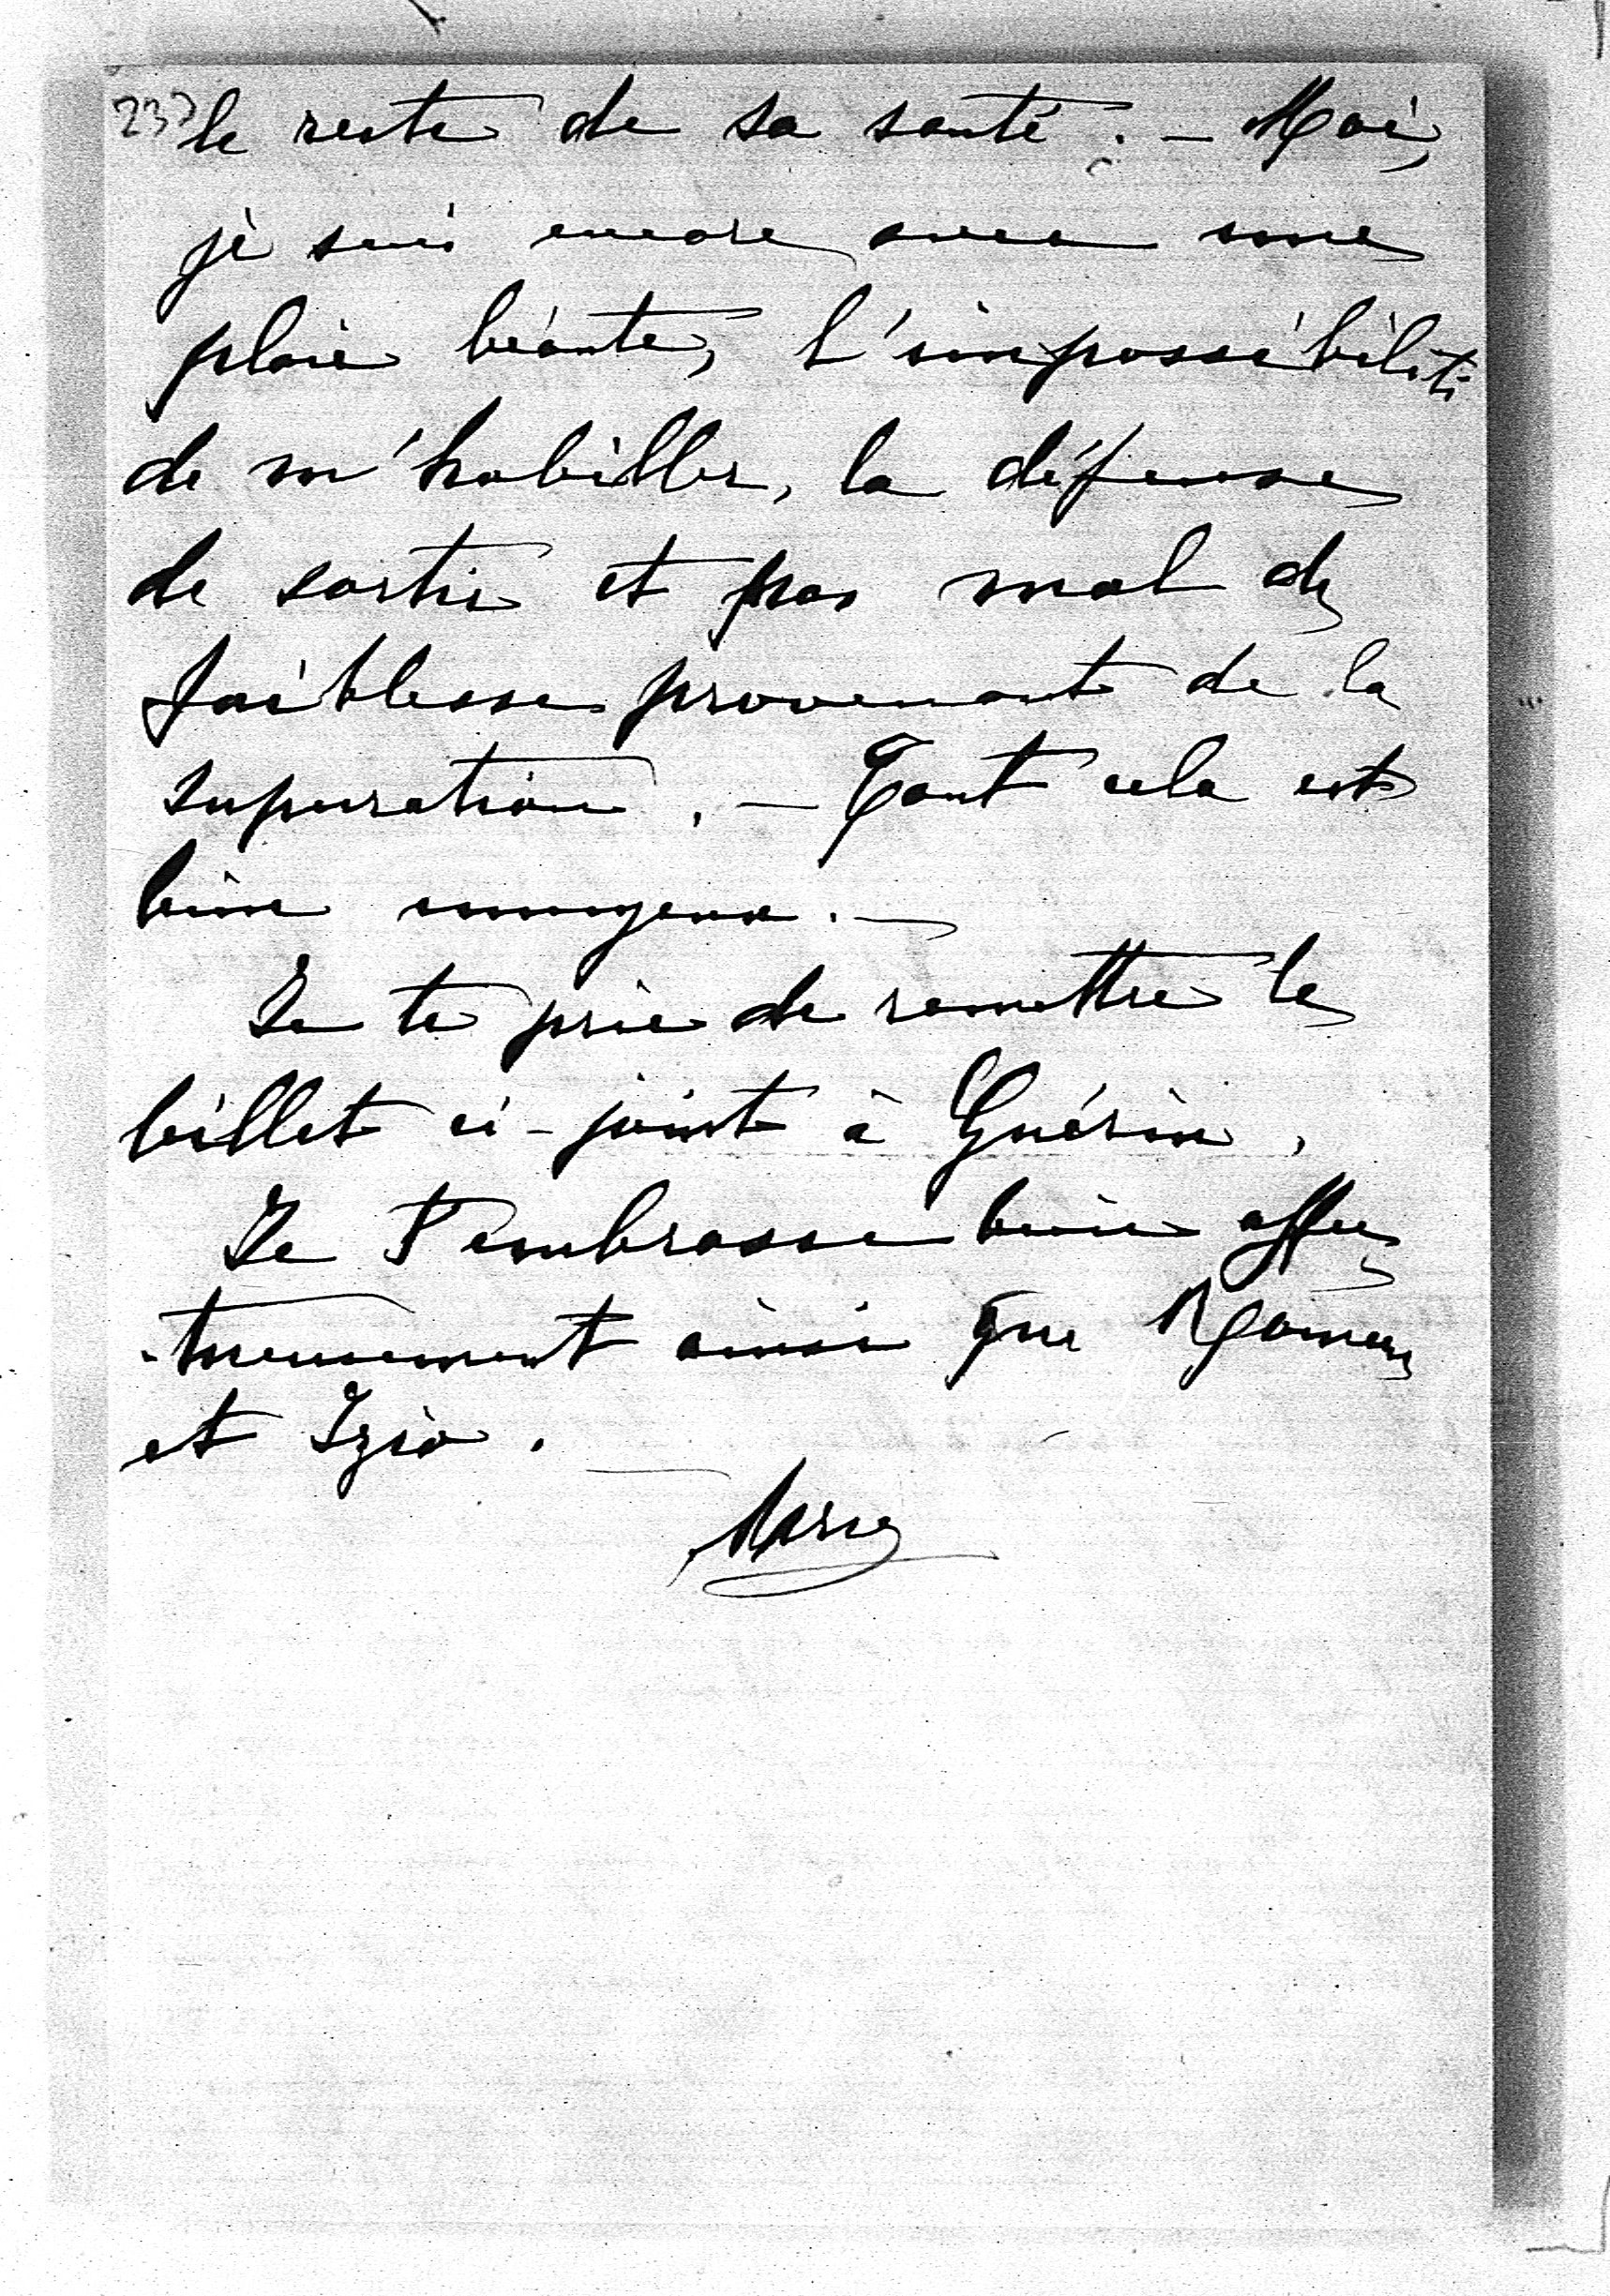 237 le reste de sa santé. — Moi,
je suis encore avec une
plaie béante, l'impossibilité
de m'habiller, la défense
de sortir et pas mal de
faiblesse provenant de la
supuration. — Tout cela est
bien ennuyeux. —
Je te prie de remettre le
billet ci-joint à Guérin.
Je t'embrasse bien affec
-tueusement ainsi que
et Izia.